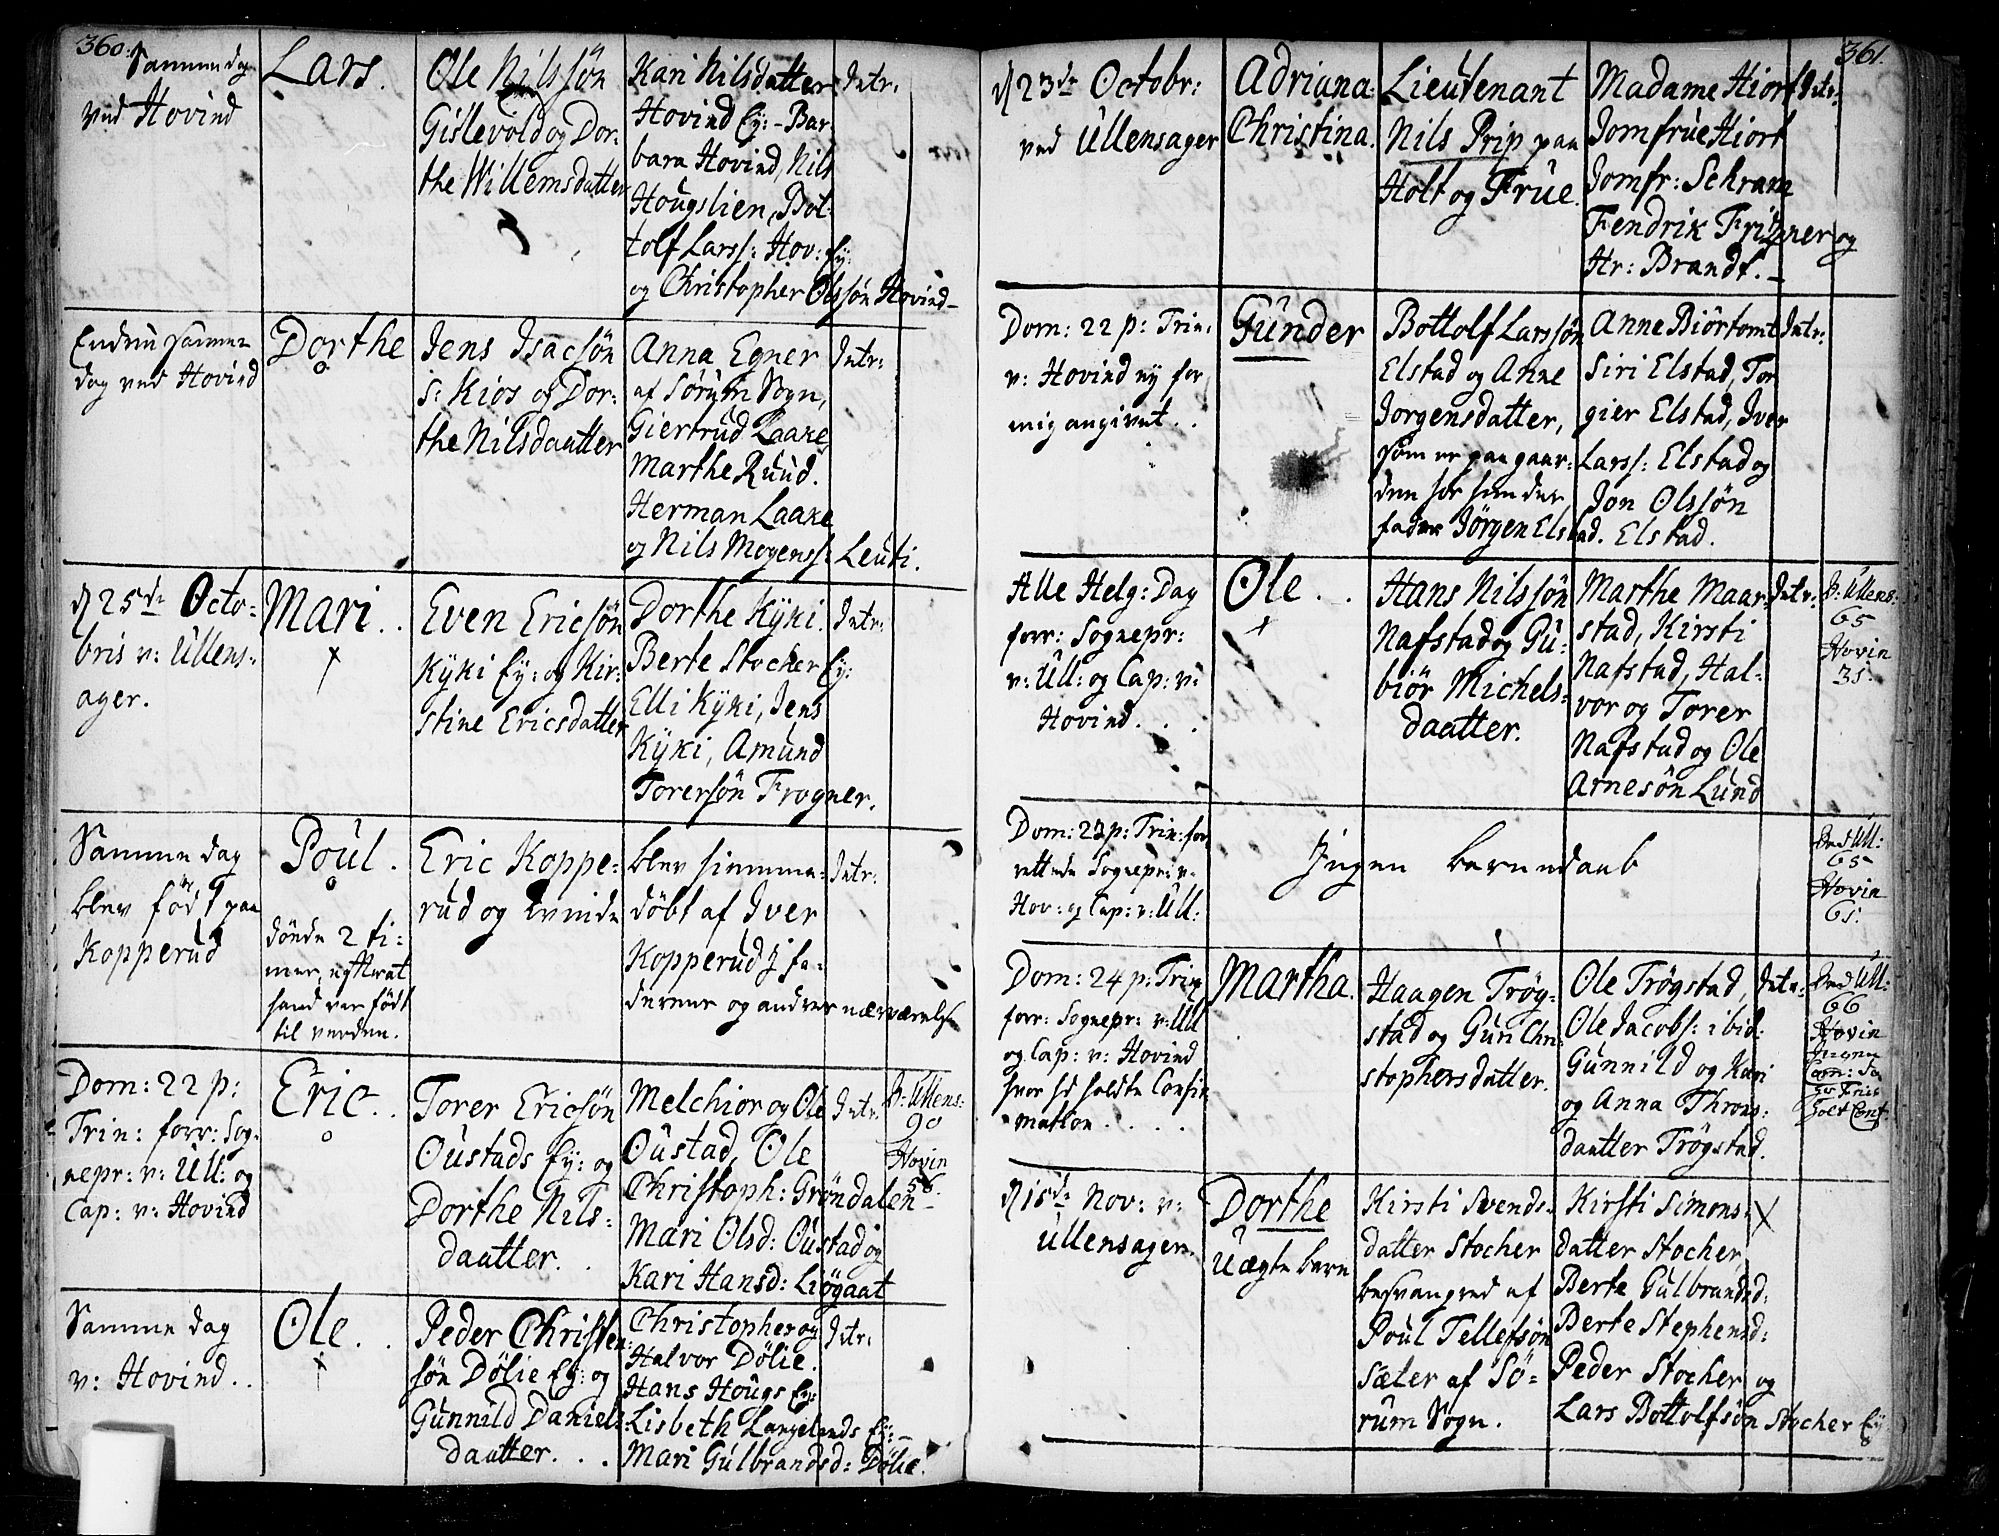 360.
Samme dag
ved Hovind
Lars.
Ole Nilssön
Gislevold og Dor-
the Willemsdatter
Kari Nilsdatter
Hovind Ey: - Bar-
bara Hovind, Nils
Hougslien, Bot-
tolf Larss: Hov: Ey:
og Christopher Olssön Hovind -
Intr:
Endnu samme
dag ved Hovind
Dorthe
Jens Isacsön
s: Kios og Dor-
the Nilsdaatter
Anna Egner
af Sörum Sogn,
Giertrud Laake
Marthe Ruud.
Herman Laake
og Nils Mogenss: Leuti.
Intr:
d 25de Octo-
bris v: Ullens-
ager.
Mari. .
Even Ericsön
Kyki Ey: og Kir-
stine Ericsdatter
Dorthe Kyki.
Berte Stocher Ey:
Elli Kyki, Jens
Kyki, Amund
Torersön Frogner.
Intr:
Samme dag
blev föd paa
Kopperud
Poul.
döde 2 ti-
mer, efterat
hand var födt
til verden.
Eric Koppe-
rud og Qvinde
blev hiemme-
döbt af Iver
Kopperud j fa-
derens og andres nærværelse
Intr:
Dom: 22 p:
Trin: forr: Sog-
nepr: v: Ull: og
Cap: v: Hovind
Eric. .
Torer Ericsön
Oustads Ey: og
Dorthe Nils-
daatter. .
Melchior og Ole
Oustad, Ole
Christoph: Gröndalen -
Mari Olsd: Oustad og
Kari Hansd: Liögaat
Intr:
v: Ullens:
90
Hovin
56.
Samme dag
v: Hovind. .
Ole. .
Peder Christen-
sön Dölie Ey: og
Gunnild Daniels-
daatter. . .
Christopher og
Halvor Dölie.
Hans Hougs Ey:
Lisbeth Langelands Ey: -
Mari Gulbrandsd: Dölie.
Intr:
361.
d 23de Octobr:
ved Ullensager
Adriana
Christina.
Lieutenant
Nils Prip paa
Holt og Frue.
Madame Hiort
Jomfrue Hiort
Jomfr: Schram
Fendrik Fritzner og
Hr: Brandt. -
Intr:
Dom: 22 p: Trin:
v: Hovind ny for
mig angivet. .
Gunder
Bottolf Larssön
Elstad og Anne
Jorgensdatter,
som er paa gaar-
den hos hendes
fader Jörgen Elstad.
Anne Biörtomt
Siri Elstad, Tor
gier Elstad, Iver
Larss: Elstad og
Jon Olssön
Elstad.
Intr:
Alle Helg: Dag
forr: Sognepr:
v: Ull: og Cap: v:
Hovind. . .
Ole. .
Hans Nilssön
Nafstad og Gu-
biör Michels-
daatter.
Marthe Maar-
stad, Kirsti
Nafstad, Hal-
vor og Torer
Nafstad og Ole
Arnesön Lund
Intr:
v: Ullens:
65
Hovin
35.
Dom: 23 p: Trin: for
rettede Sognepr: v:
Hov: og Cap: v: Ull:
Ingen barnedaab
Ved Ull:
65
Hovin
61.
Dom: 24 p: Trin
forr: Sognepr: v: Ull
og Cap: v: Hovind
hvor hd holdte Confir
mation. . . .
Martha.
Haagen Trög-
stad og Guri Chri
stophersdatter.
Ole Trögstad,
Ole Jacobs: ibid:
Gunnild og Kari
og Anna Throns-
daatter Trögstad.
Intr:
Ved Ull:
66
Hovin
Ingen
d 15de Nov: v:
Ullensager.
Dorthe
Uægte barn
Kirsti Svends-
datter Stocher
besvangred af
Poul Tellefsön
Sæter af Sö-
rum Sogn.
Kirsti Simons-
datter Stocher,
Berte Gulbrandsd:
Berte Stephensd:
Peder Stocher og
Lars Bottolfsön Stocher Ey